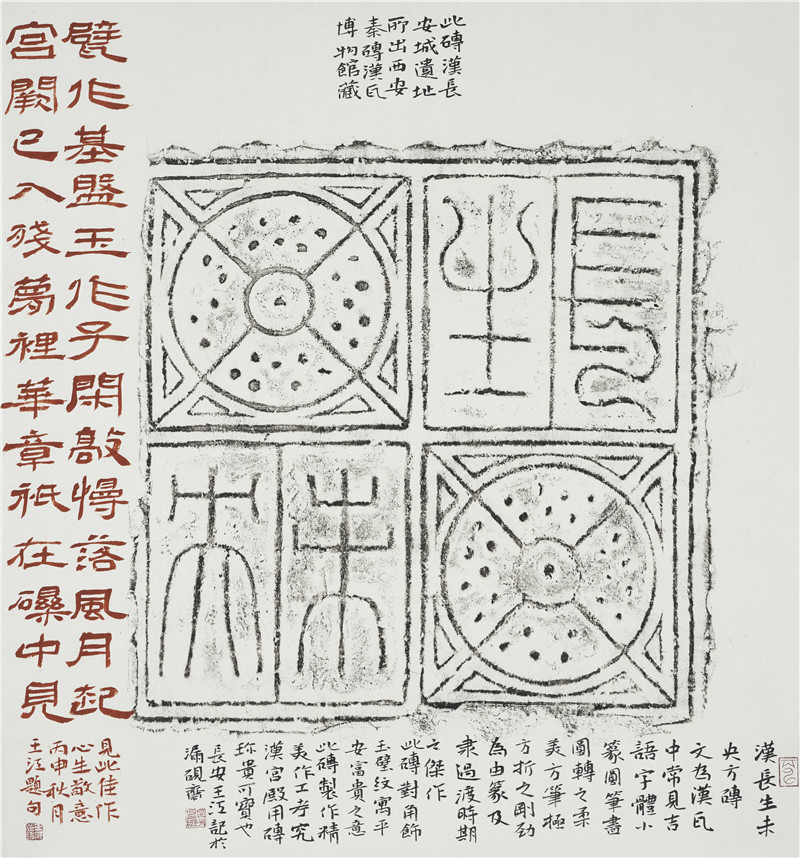 此磚漢長
安城遺址
所出西安
秦磚漢瓦
博物館藏
長生
未央
甓作基盤玉作子閑敲慢落風月起
宮闕已入殘萬裡華章祇在中見
見此佳作
心生敬意
丙申秋月
王江題句
漢長生未
央方磚
文為漢瓦
中常見吉
語字體小
篆圓筆畫
圓轉之柔
美方筆極
方折之剛勁
為由篆及
隸過渡時期
之傑作
此磚對角飾
玉璧紋寓平
安富貴之意
此磚製作精
美作工考究
漢宮殿用磚
珍貴可寶也
長安王江記於
漏硯齋